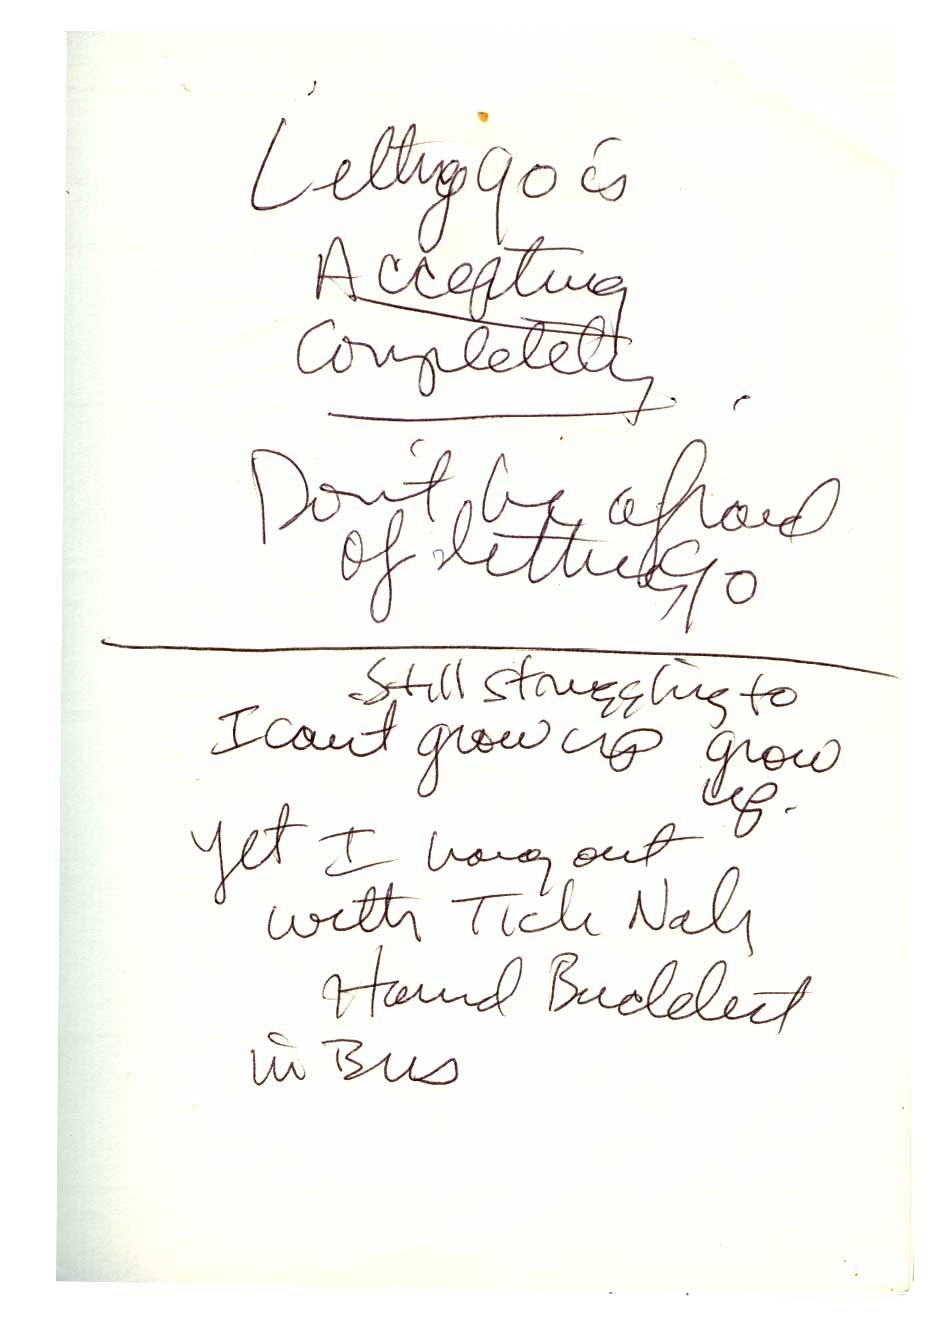 Letting go is
Accepting
Completely
Don't be afraid
of letting go
Still struggling to
I cant grow up grow
up.
yet I hang out
with Tich Nah
Hand Buddist
in Bus